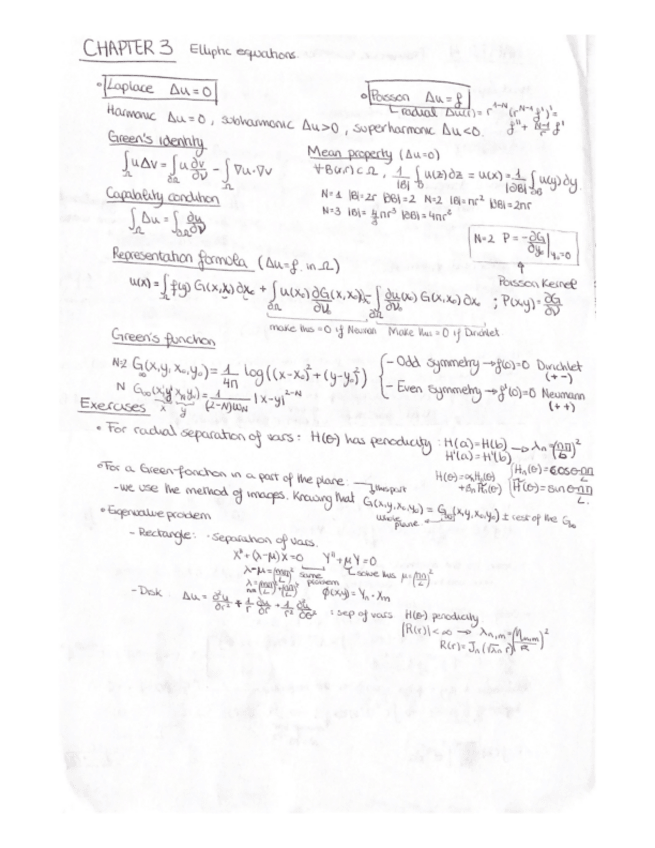 CHAPTER 3 Elliptic equations.
• Laplace Δu=0
• Poisson Δu=f
↳ radial Δu(r)= r^{1-N} (r^{N-1} f')' =
f'' + (N-1)/r f'
Harmonic Δu=0, subharmonic Δu>0, superharmonic Δu<0.
Green's identity
∫_Ω uΔv = ∫_∂Ω u ∂v/∂ν - ∫_Ω ∇u·∇v
Mean property (Δu=0)
∀B(x,r)⊂Ω, 1/|B| ∫_B u(z)dz = u(x) = 1/|∂B| ∫_∂B u(y)dy.
N=1 |B|=2r |∂B|=2 N=2 |B|=πr² |∂B|=2πr
N=3 |B|=4/3 πr³ |∂B|=4πr²
Capability condition
∫_Ω Δu = ∫_∂Ω ∂u/∂ν
N=2 P = -∂G/∂y₀ |y₀=0
Poisson Kernel
Representation formula (Δu=f in Ω)
u(x) = ∫_Ω f(y) G(x,x₀) dx₀ + ∫_∂Ω u(x₀) ∂G(x,x₀) - ∫_∂Ω ∂u(x₀) G(x,x₀) dx₀ ; P(x,y)= ∂G/∂ν
make this =0 if Neuman Make this =0 if Dirichlet
Green's function
N=2 G∞(x,y,x₀,y₀) = 1/4π log((x-x₀)²+(y-y₀)²)
- Odd symmetry → f(0)=0 Dirichlet
(+ -)
- Even symmetry → f'(0)=0 Neumann
(+ +)
N G∞(x,y,x₀,y₀) = 1/((2-N)ω_N) |x-y|^{2-N}
x y
Exercises
• For radial separation of vars: H(θ) has periodicity: H(a)=H(b) → λn=(nπ/b)²
H'(a)=H'(b)
H(θ)=αnHn(θ)
+βnH̃n(θ)
Hn(θ)=cosθ nπ/L
H̃(θ)=sinθ nπ/L
• For a Green-function in a part of the plane:
- we use the method of images. Knowing that G(x,y,x₀,y₀) = G∞(x,y,x₀,y₀) ± rest of the G∞
this part
whole plane
• Eigenvalue problem
- Rectangle: · Separation of vars.
X''+(λ-μ)X=0 Y''+μY=0
λ-μ=(mπ/L)² same problem
↳ solve this μ=(nπ/L)²
λnm=(mπ/L)²+(nπ/L)² φ(x,y)=Yn·Xm
- Disk Δu = ∂²u/∂r² + 1/r ∂u/∂r + 1/r² ∂²u/∂θ² : sep of vars H(θ) periodicity
|R(r)|<∞ → λn,m=(μn,m/R)²
R(r)=Jn(√λn r)